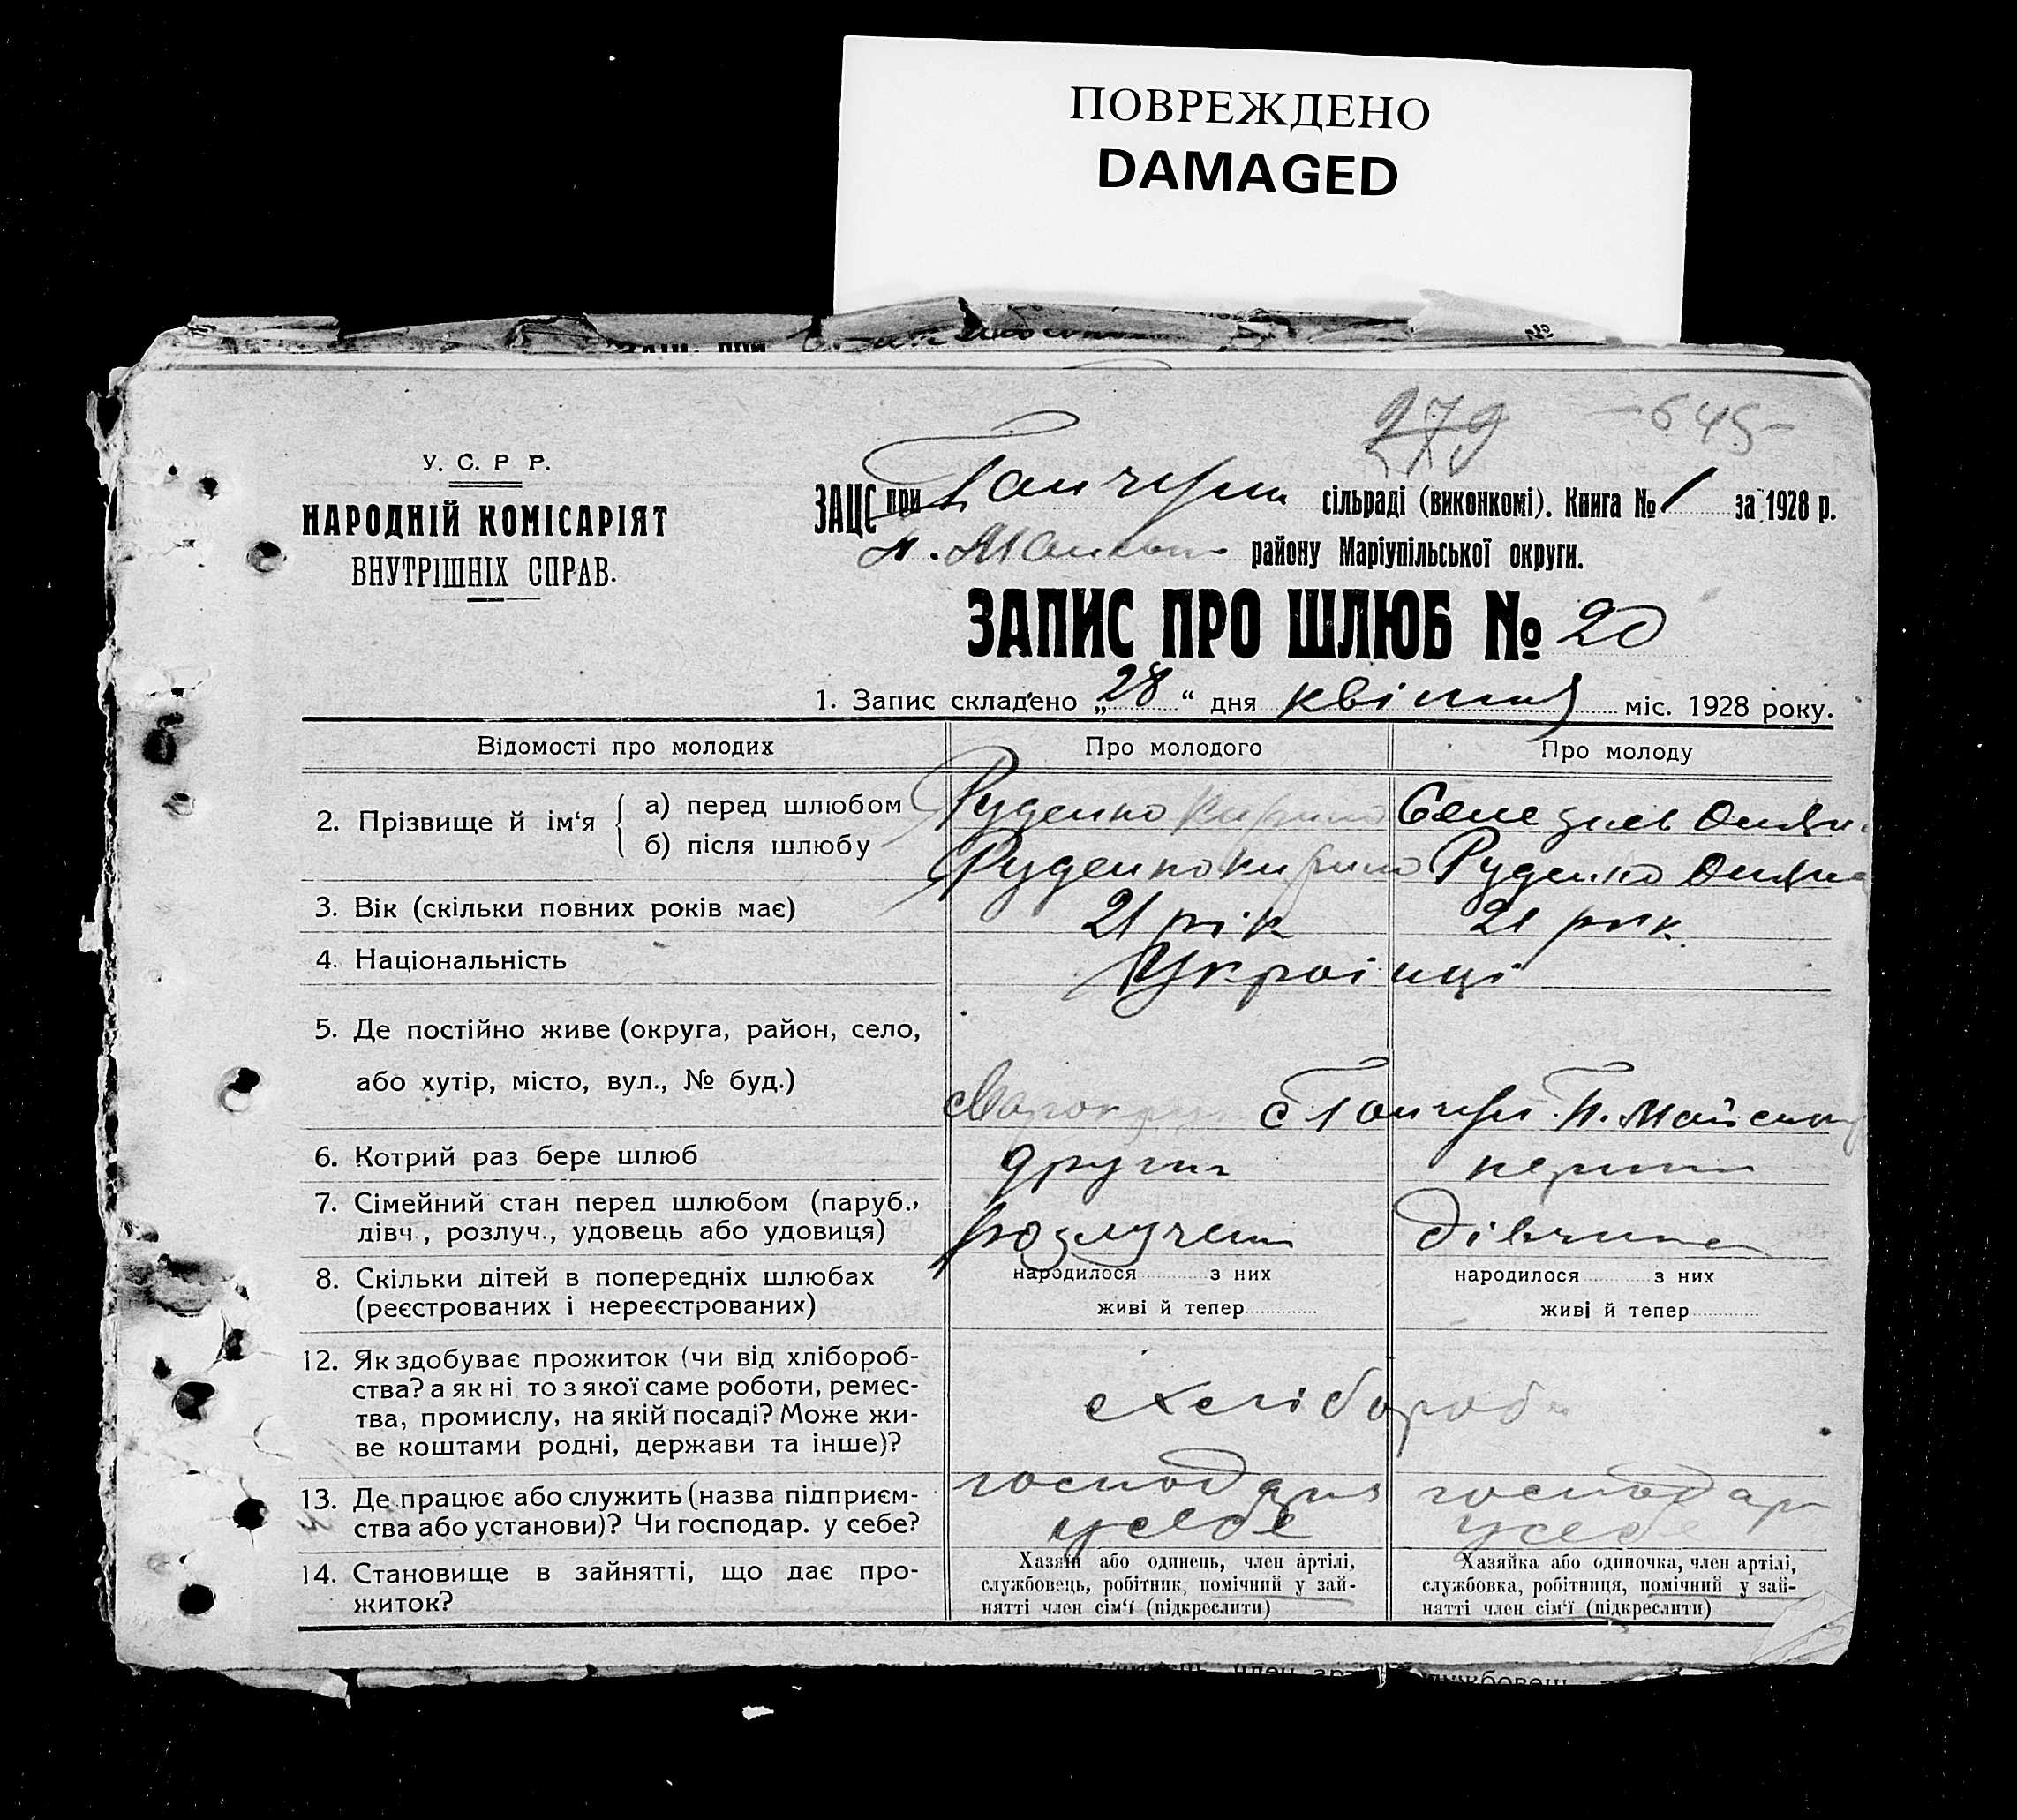 ПОВРЕЖДЕНО
DAMAGED
279 -645-
У. С. Р Р.
НАРОДНІЙ КОМІСАРІЯТ
ВНУТРІШНІХ СПРАВ.
ЗАЦС при сільраді (виконкомі). Книга № 1 за 1928 р.
району Маріупільської округи.
ЗАПИС ПРО ШЛЮБ № 20
1. Запис складено „28“ дня квітня міс. 1928 року.
Відомості про молодих Про молодого Про молоду
2. Прізвище й ім‘я а) перед шлюбом Руденко Кирило
б) після шлюбу Руденко Кирило Руденко
3. Вік (скільки повних років має) 21 рік 21 рік
4. Національність Українці
5. Де постійно живе (округа, район, село,
або хутір, місто, вул., № буд.)
6. Котрий раз бере шлюб другий перший
7. Сімейний стан перед шлюбом (паруб.,
дівч., розлуч., удовець або удовиця) розлучений дівчина
8. Скільки дітей в попередніх шлюбах народилося з них народилося з них
(реєстрованих і нереєстрованих) живі й тепер живі й тепер
12. Як здобуває прожиток (чи від хлібороб-
ства? а як ні то з якої саме роботи, ремес-
тва, промислу, на якій посаді? Може жи-
ве коштами родні, держави та інше)?
13. Де працює або служить (назва підприєм-
ства або установи)? Чи господар. у себе? у себе у себе
14. Становище в зайнятті, що дає про-
житок?
Хазяїн або одинець, член артілі,
службовець, робітник, помічний у зай-
нятті член сім‘ї (підкреслити)
Хазяйка або одиночка, член артілі,
службовка, робітниця, помічний у зай-
нятті член сім‘ї (підкреслити)